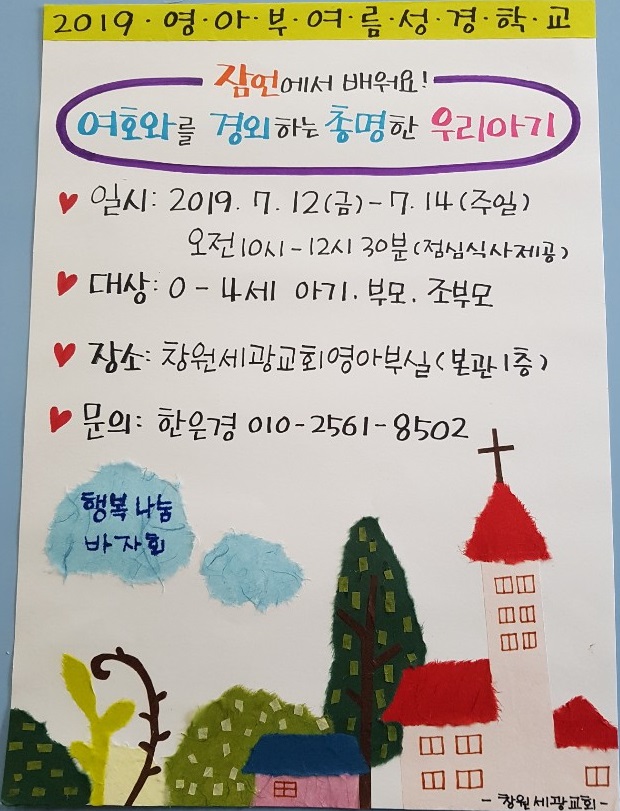 2019·영·아·부·여·름·성·경·학·교
잠언에서 배워요!
여호와를 경외하는 총명한 우리아기
♥ 일시: 2019. 7. 12(금)-7. 14(주일)
오전10시-12시 30분(점심식사제공)
♥ 대상: 0-4세 아기. 부모. 조부모
♥ 장소: 창원세광교회영아부실(본관1층)
♥ 문의: 한은경 010-2561-8502
행복나눔
바자회
-창원세광교회-